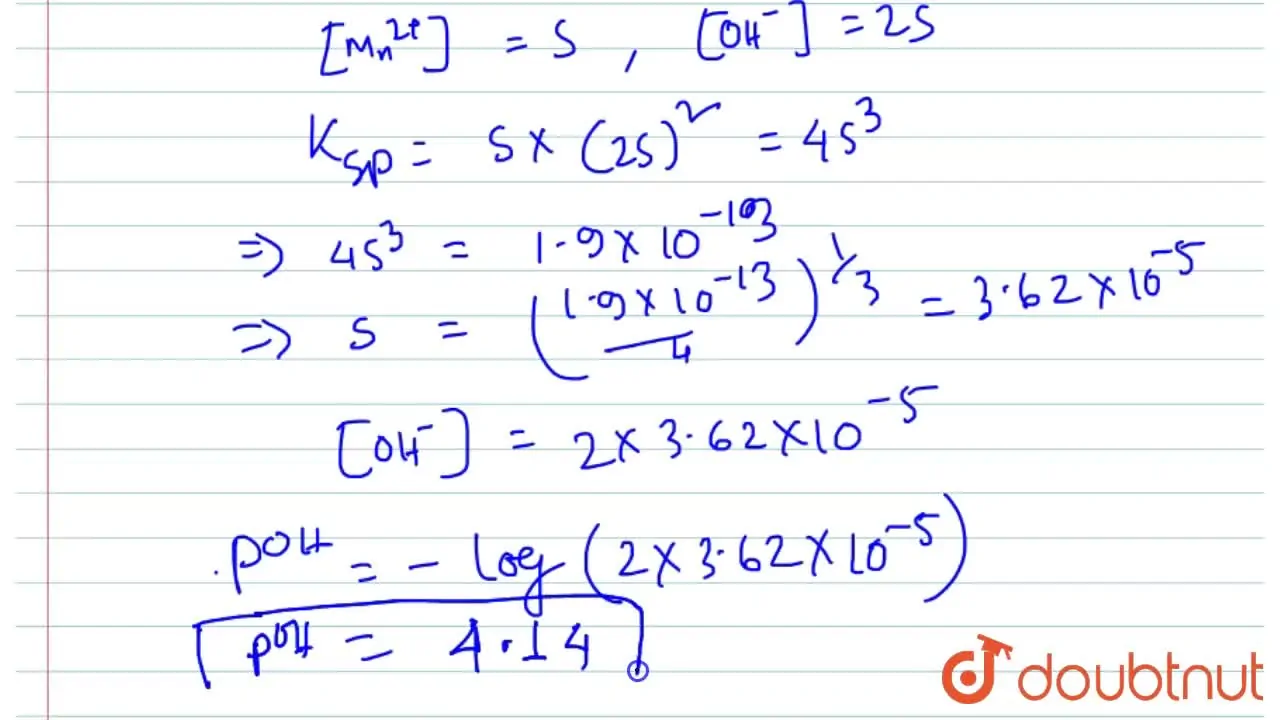 [Mn²⁺] = S , [OH⁻] = 2S
Ksp = S × (2S)² = 4S³
=> 4S³ = 1.9 × 10⁻¹³
=> S = (1.9 × 10⁻¹³ / 4)^1/3 = 3.62 × 10⁻⁵
[OH⁻] = 2 × 3.62 × 10⁻⁵
pOH = - log (2 × 3.62 × 10⁻⁵)
pOH = 4.14
doubtnut